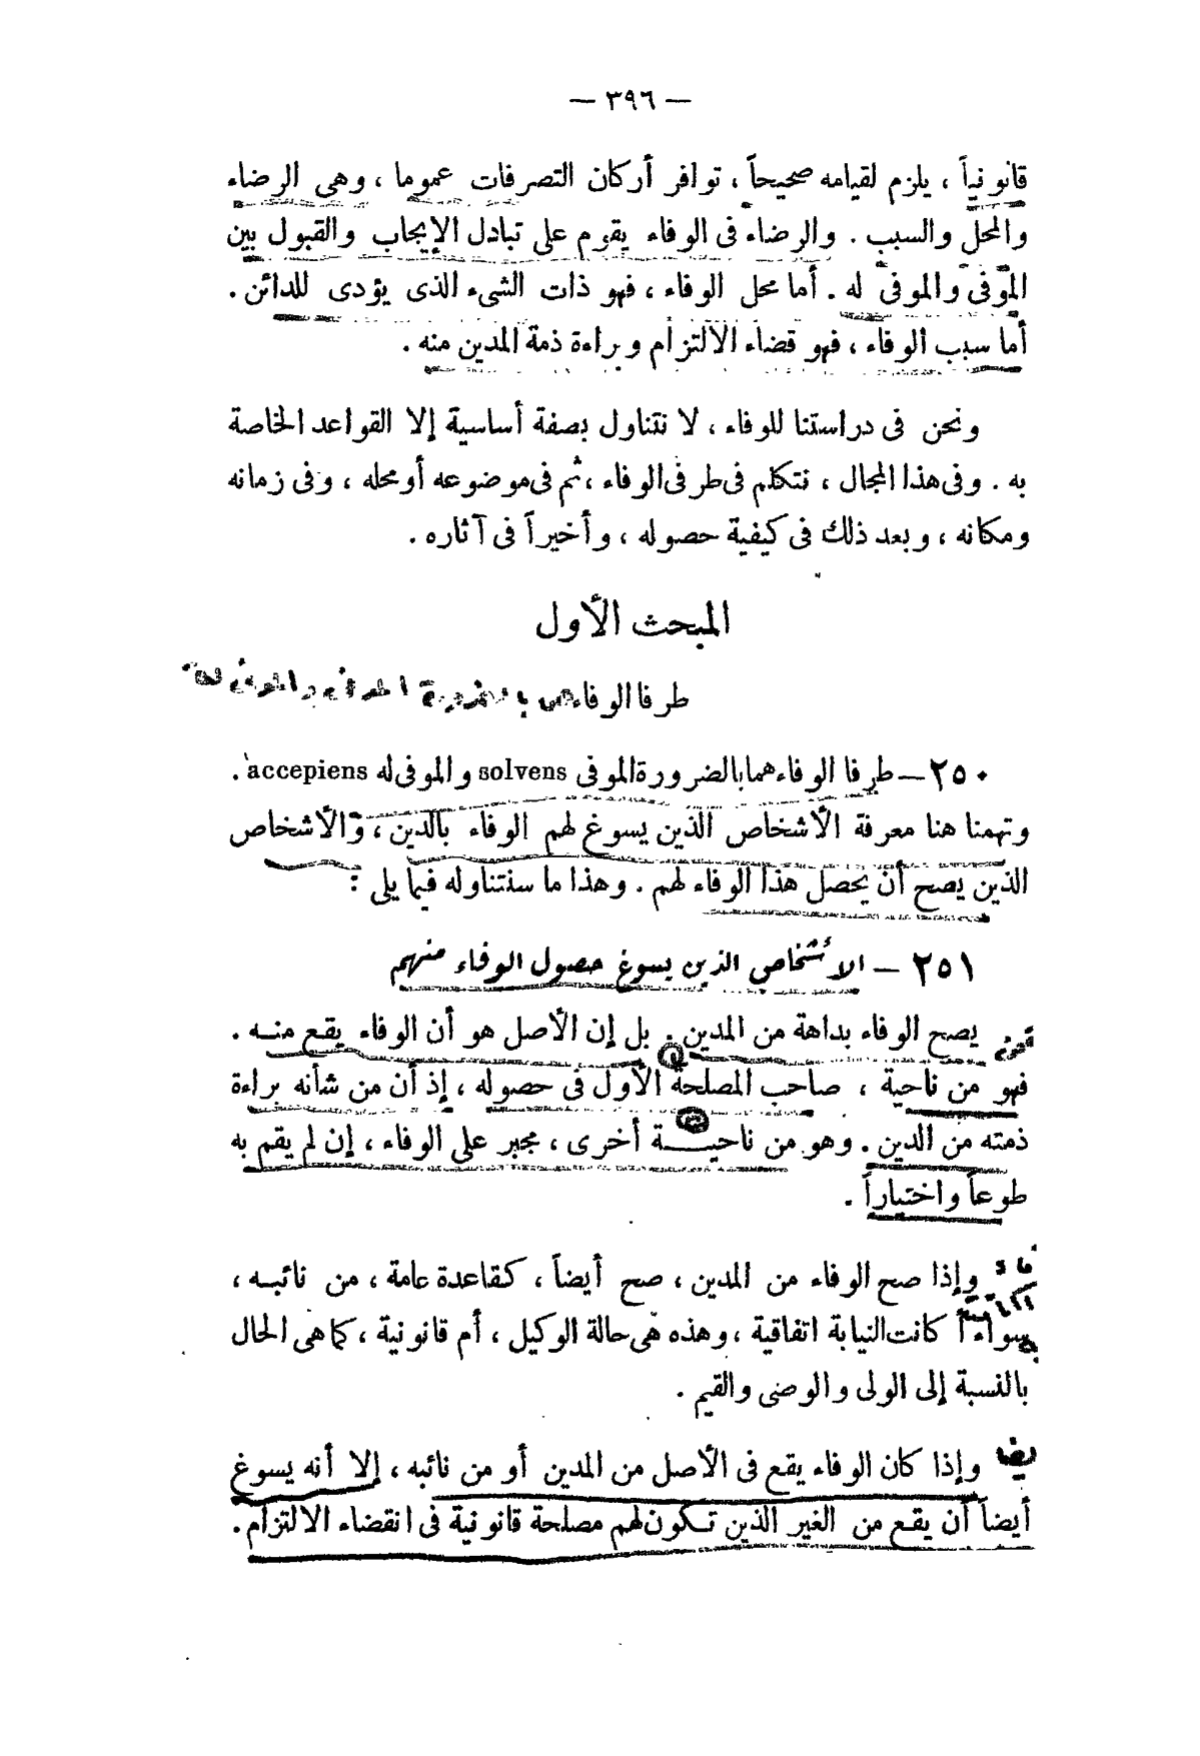 — ٣٩٦ —
قانونياً ، يلزم لقيامه صحيحاً ، توافر أركان التصرفات عموما ، وهى الرضاء
والمحل والسبب . والرضاء فى الوفاء يقوم على تبادل الإيجاب والقبول بين
الموفى والموفى له . أما محل الوفاء ، فهو ذات الشىء الذى يؤدى للدائن .
أما سبب الوفاء ، فهو قضاء الالتزام وبراءة ذمة المدين منه .
ونحن فى دراستنا للوفاء ، لا نتناول بصفة أساسية إلا القواعد الخاصة
به . وفى هذا المجال ، نتكلم فى طرفى الوفاء ، ثم فى موضوعه أو محله ، وفى زمانه
ومكانه ، وبعد ذلك فى كيفية حصوله ، وأخيراً فى آثاره .
المبحث الأول
طرفا الوفاء هما بالضرورة الموفى والموفى له
٢٥٠ — طرفا الوفاء هما بالضرورة الموفى solvens والموفى له accepiens .
وتهمنا هنا معرفة الأشخاص الذين يسوغ لهم الوفاء بالدين ، والأشخاص
الذين يصح أن يحصل هذا الوفاء لهم . وهذا ما سنتناوله فيما يلى :
٢٥١ — الأشخاص الذين يسوغ حصول الوفاء منهم
يصح الوفاء بداهة من المدين . بل إن الأصل هو أن الوفاء يقع منـه .
فهو من ناحية ، صاحب المصلحة الأول فى حصوله ، إذ أن من شأنه براءة
ذمته من الدين . وهو من ناحيـة أخرى ، مجبر على الوفاء ، إن لم يقم به
طوعاً واختياراً .
وإذا صح الوفاء من المدين ، صح أيضاً ، كقاعدة عامة ، من نائبـه ،
سواء أكانت النيابة اتفاقية ، وهذه هى حالة الوكيل ، أم قانونية ، كما هى الحال
بالنسبة إلى الولى والوصى والقيم .
وإذا كان الوفاء يقع فى الأصل من المدين أو من نائبه ، إلا أنه يسوغ
أيضاً أن يقـع من الغير الذين تـكون لهم مصلحة قانونية فى انقضاء الالتزام .